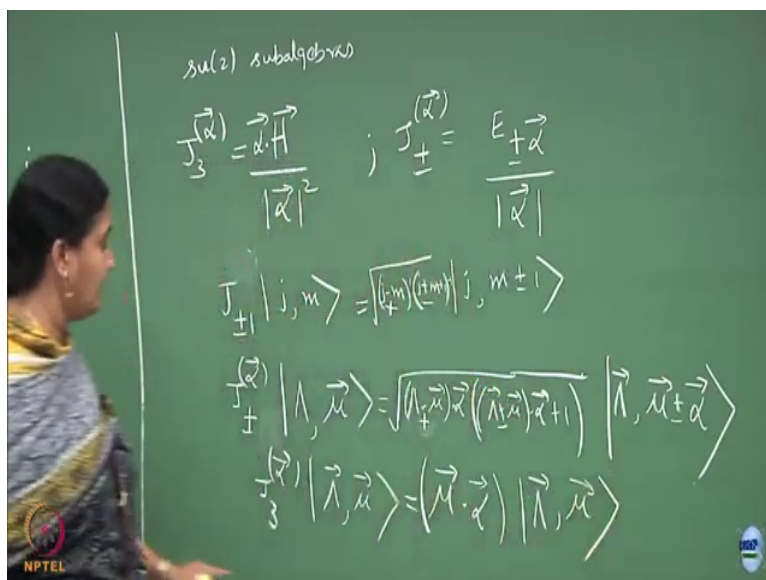 su(2) subalgebras
J₃^(α⃗) = α⃗·H⃗ / |α⃗|² ; J±^(α⃗) = E±α⃗ / |α⃗|
J±1 |j, m⟩ = √((j∓m)(j±m+1)) |j, m±1⟩
J±^(α⃗) |Λ, μ⃗⟩ = √((Λ∓μ⃗)·α⃗ ((Λ⃗±μ⃗)·α⃗+1)) |Λ⃗, μ⃗±α⃗⟩
J₃^(α⃗) |Λ⃗, μ⃗⟩ = (μ⃗·α⃗) |Λ⃗, μ⃗⟩
NPTEL